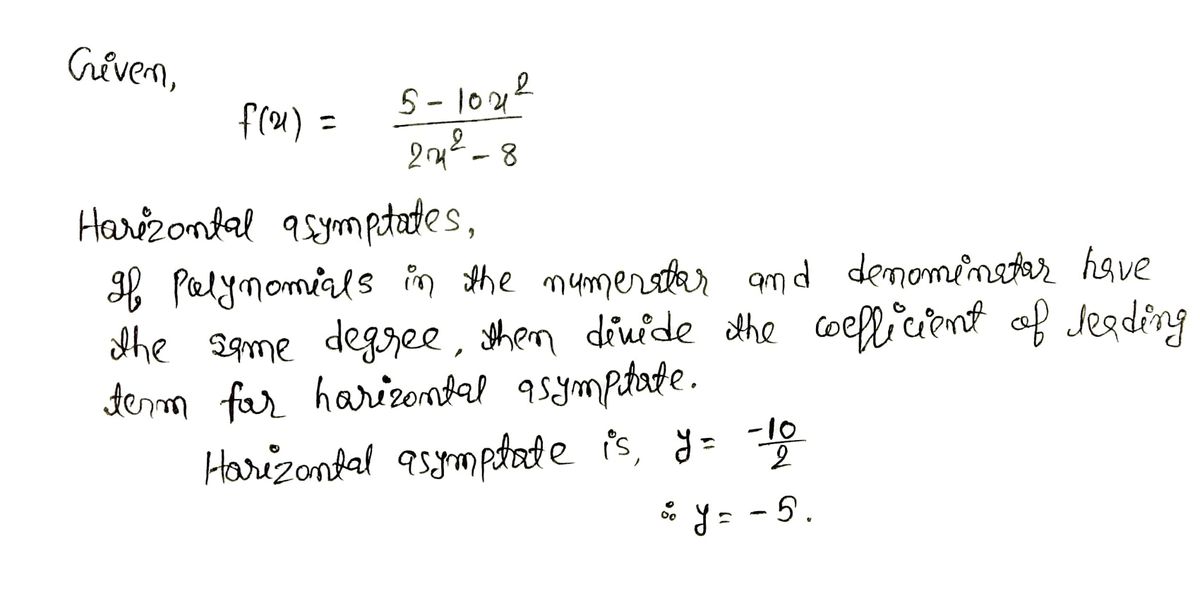 Given,
f(x) = \frac{5 - 10x^2}{2x^2 - 8}
Horizontal asymptotes,
If Polynomials in the numerator and denominator have
the same degree, then divide the coefficient of leading
term for horizontal asymptote.
Horizontal asymptote is, y = \frac{-10}{2}
∴ y = -5.